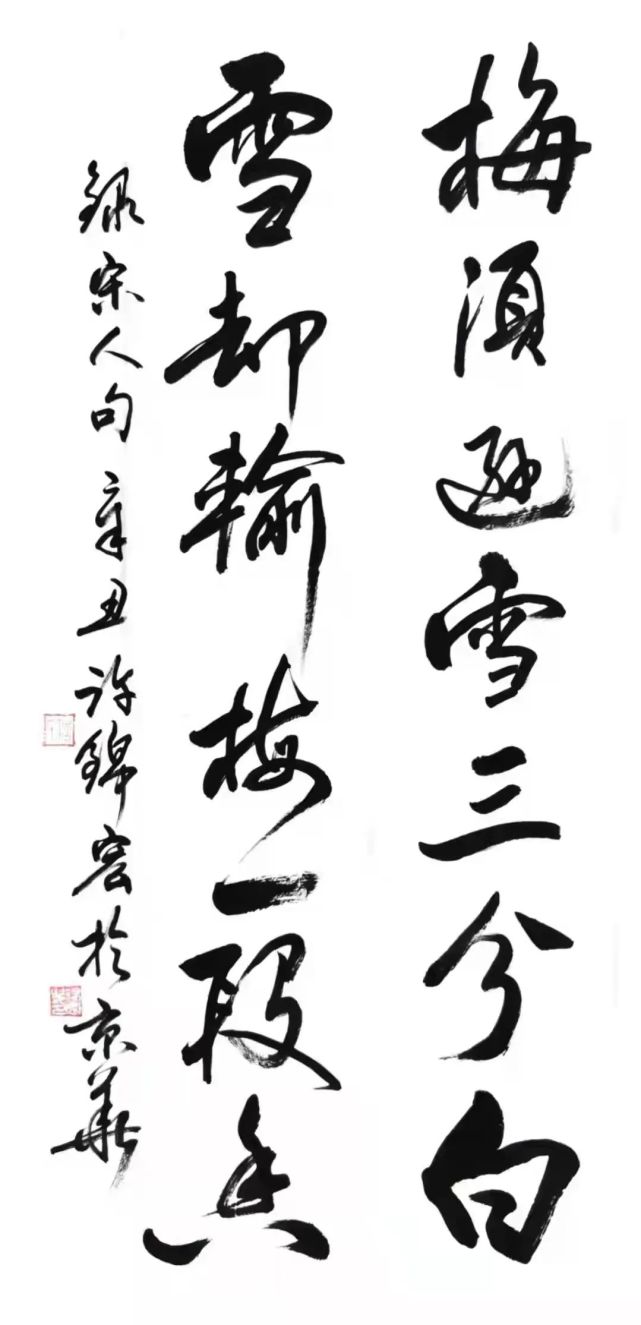 梅須遜雪三分白
雪却輸梅一段香
錄宋人句辛丑许錦宏於京華